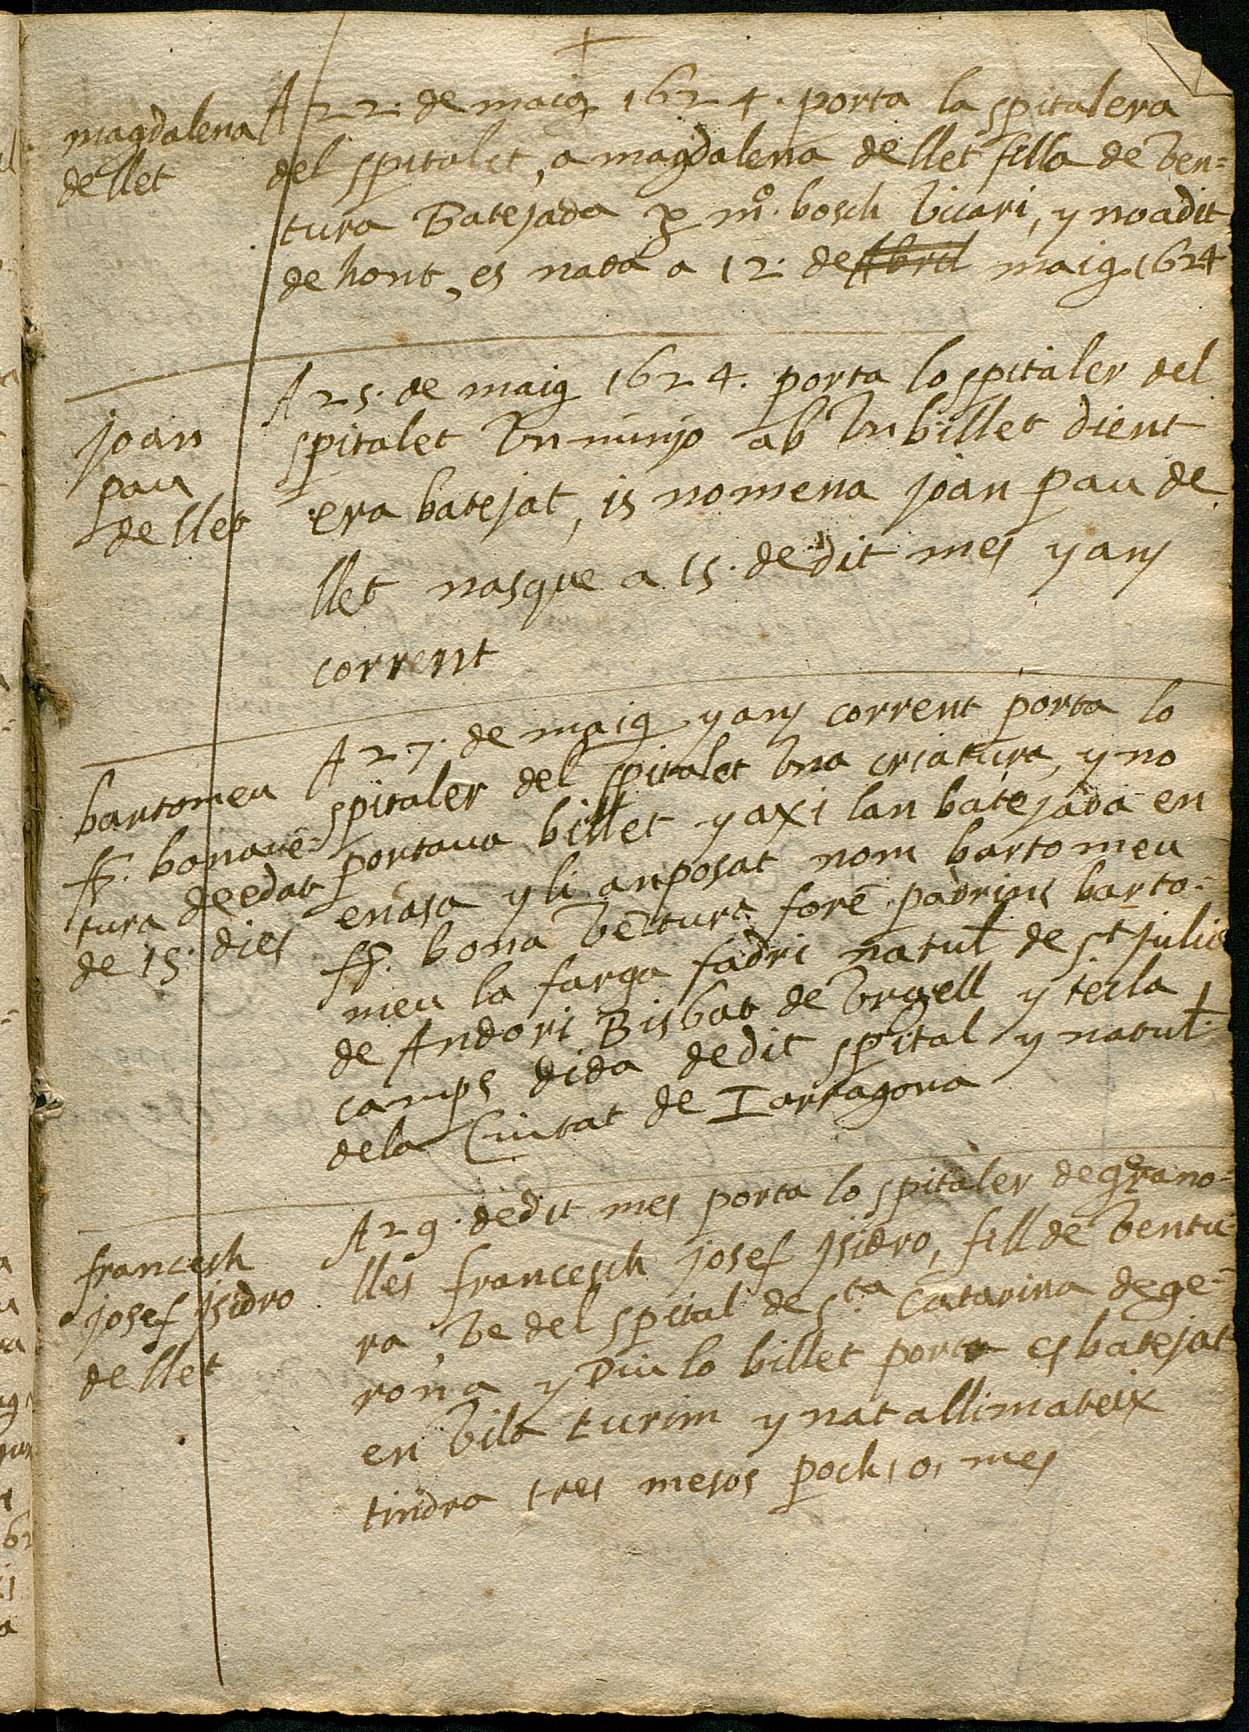 magdalena
de llet
A 22. de maig 1624. porta la spitalera
del spitalet, a magdalena de llet filla de ven=
tura Batejada p mº. bosch vicari, y no a dit
de hont, es nada a 12. de Abril maig 1624
joan
pau
de llet
A 25. de maig 1624. porta lo spitaler del
spitalet vn minyo ab vn billet dient
era batejat, is nomena joan pau de
llet nasque a 15. de dit mes y any
corrent
bartomeu
ff. bonavē=
tura de edat
de 15. dies
A 27. de maig y any corrent porta lo
spitaler del spitalet vna criatura, y no
portaua billet y axi lan batejada en
casa y li an posat nom bartomeu
ff. bona vētura forē padrins barto=
meu la farga fadri natul de st julia
de Andori Bisbat de vrgell y tecla
camps dida de dit spital y natul
dela Ciutat de Tarragona
francesch
josef jsidro
de llet
A 29. de dit mes porta lo spitaler de grano=
lles francesch josef jsidro, fill de ventu=
ra, ve del spital de sta. Catarina de ge=
rona y Diu lo billet porta es batejat
en vila turim y nat alli mateix
tindra tres mesos poch, o, mes